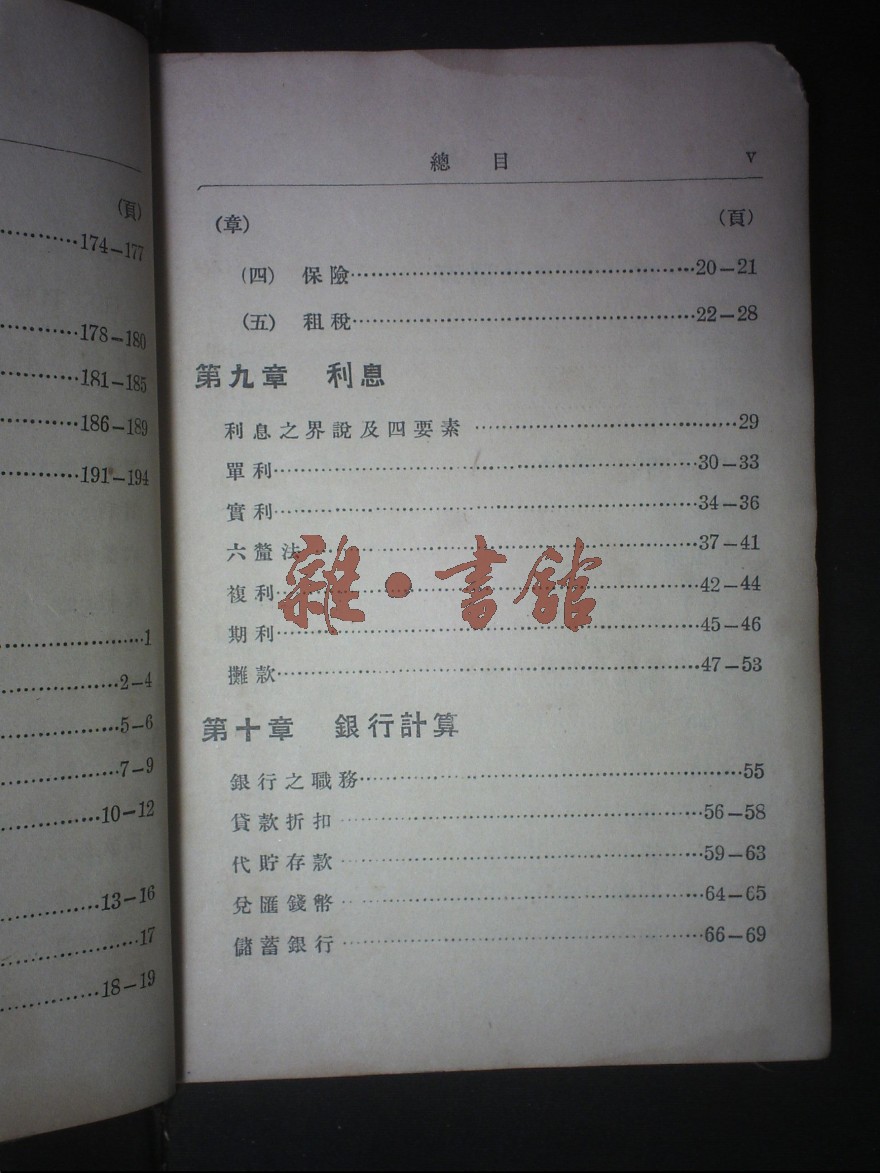 (頁)
174—177
178—180
181—185
186—189
191—194
1
2—4
5—6
7—9
10—12
13—16
17
18—19
總 目 v
(章) (頁)
(四) 保險……20—21
(五) 租稅……22—28
第九章 利息
利息之界說及四要素……29
單利……30—33
實利……34—36
六釐法……37—41
複利……42—44
期利……45—46
攤款……47—53
第十章 銀行計算
銀行之職務……55
貸款折扣……56—58
代貯存款……59—63
兌匯錢幣……64—65
儲蓄銀行……66—69
雜·書館